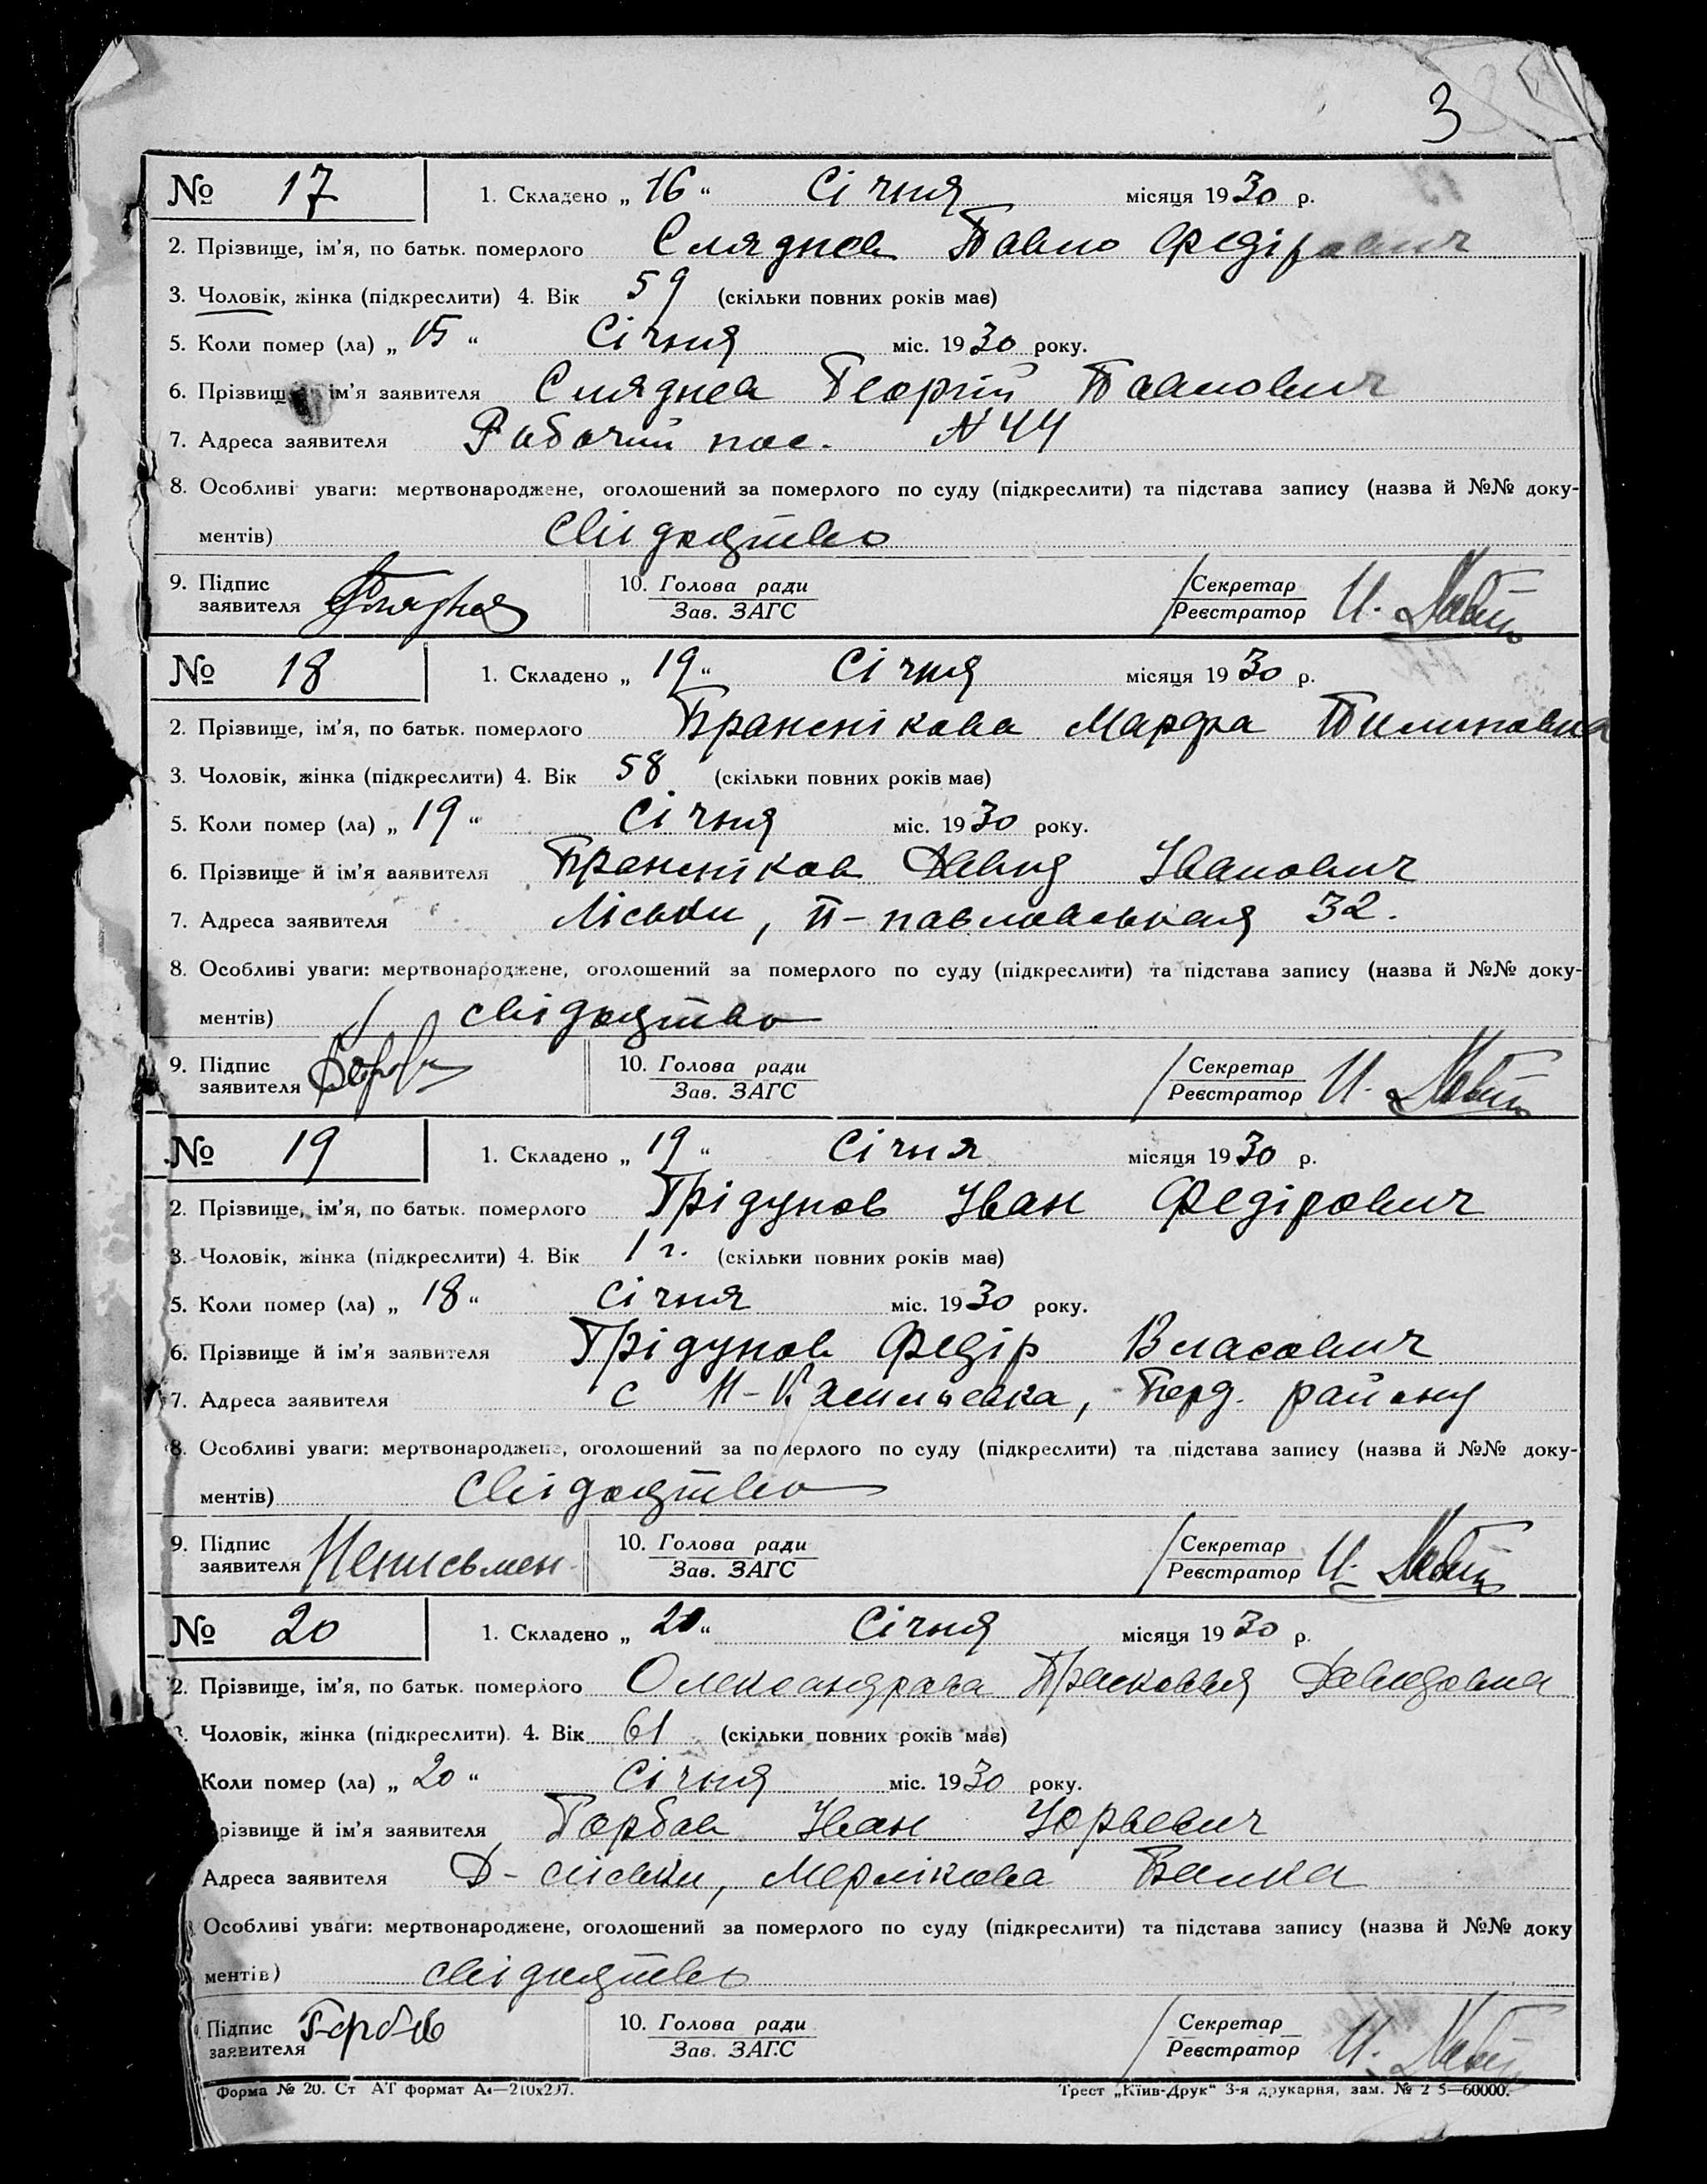 3
№ 17 1. Складено „ 16 “ Січня місяця 1930 р.
2. Прізвище, ім'я, по батьк. померлого Сляднев Павло Федірович
3. Чоловік, жінка (підкреслити) 4. Вік 59 (скільки повних років має)
5. Коли помер (ла) „ 15 “ Січня міс. 1930 року.
6. Прізвище ім'я заявителя Сляднев Георгій Павлович
7. Адреса заявителя Рабочий пос. N 44
8. Особливі уваги: мертвонароджене, оголошений за померлого по суду (підкреслити) та підстава запису (назва й №№ доку-
ментів) свідоцтво
9. Підпис заявителя 10. Голова ради Зав. ЗАГС Секретар Реєстратор И.
№ 18 1. Складено „ 19 “ Січня місяця 1930 р.
2. Прізвище, ім'я, по батьк. померлого Марфа
3. Чоловік, жінка (підкреслити) 4. Вік 58 (скільки повних років має)
5. Коли помер (ла) „ 19 “ Січня міс. 1930 року.
6. Прізвище й ім'я заявителя Давид Іванович
7. Адреса заявителя Ліски, П-павловская 32.
8. Особливі уваги: мертвонароджене, оголошений за померлого по суду (підкреслити) та підстава запису (назва й №№ доку-
ментів) свідоцтво
9. Підпис заявителя 10. Голова ради Зав. ЗАГС Секретар Реєстратор И.
№ 19 1. Складено „ 19 “ Січня місяця 1930 р.
2. Прізвище, ім'я, по батьк. померлого Грідунов Іван Федірович
3. Чоловік, жінка (підкреслити) 4. Вік 1 г. (скільки повних років має)
5. Коли помер (ла) „ 18 “ Січня міс. 1930 року.
6. Прізвище й ім'я заявителя Грідунов Федір Власович
7. Адреса заявителя с району
8. Особливі уваги: мертвонароджене, оголошений за померлого по суду (підкреслити) та підстава запису (назва й №№ доку-
ментів) свідоцтво
9. Підпис заявителя Неписьмен. 10. Голова ради Зав. ЗАГС Секретар Реєстратор И.
№ 20 1. Складено „ 20 “ Січня місяця 1930 р.
2. Прізвище, ім'я, по батьк. померлого Олександрова Прасковья Давидовна
Чоловік, жінка (підкреслити). 4. Вік 61 (скільки повних років має)
Коли помер (ла) „ 20 “ Січня міс. 1930 року.
різвище й ім'я заявителя Горбов Іван Юрьевич
Адреса заявителя Балка
Особливі уваги: мертвонароджене, оголошений за померлого по суду (підкреслити) та підстава запису (назва й №№ доку
ментів) свідоцтво
Підпис заявителя Горбов 10. Голова ради Зав. ЗАГС Секретар Реєстратор И.
Форма № 20. Ст АТ формат А4—210х297. Трест „Київ-Друк“ 3-я друкарня, зам. № 2 5—60000.